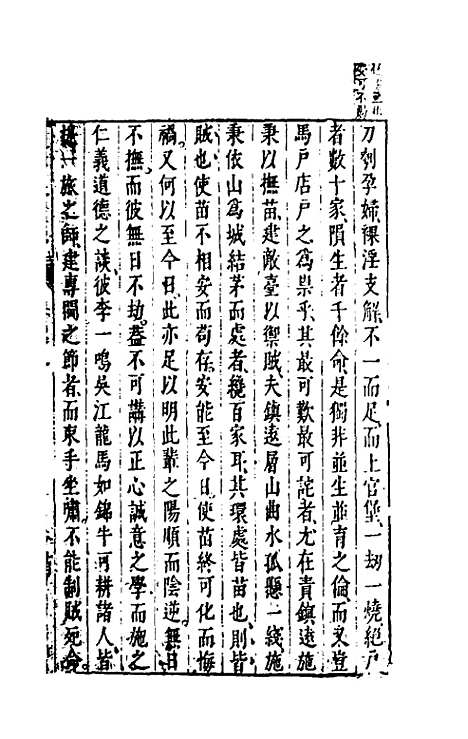 刀刳孕婦裸淫支解不一而足而上官堡一劫一燒絕戶
者數十家隕生者千餘命是獨非並生並育之倫而又豈
馬戶店戶之爲祟乎其最可歎最可詫者尤在責鎮遠施
秉以撫苗建敵臺以禦賊夫鎮遠層山曲水孤懸一綫施
秉依山爲城結茅而處者纔百家耳其環處皆苗也則皆
賊也使苗不相安而苟存安能至今日使苗終可化而悔
禍又何以至今日此亦足以明此輩之陽順而陰逆無日
不撫而彼無日不劫蓋不可講以正心誠意之學而施之
仁義道德之談彼李一鳴吳江龍馬如錦牛可耕諸人皆
擁一旅之師建專閫之節者而束手坐嘯不能制賊死命